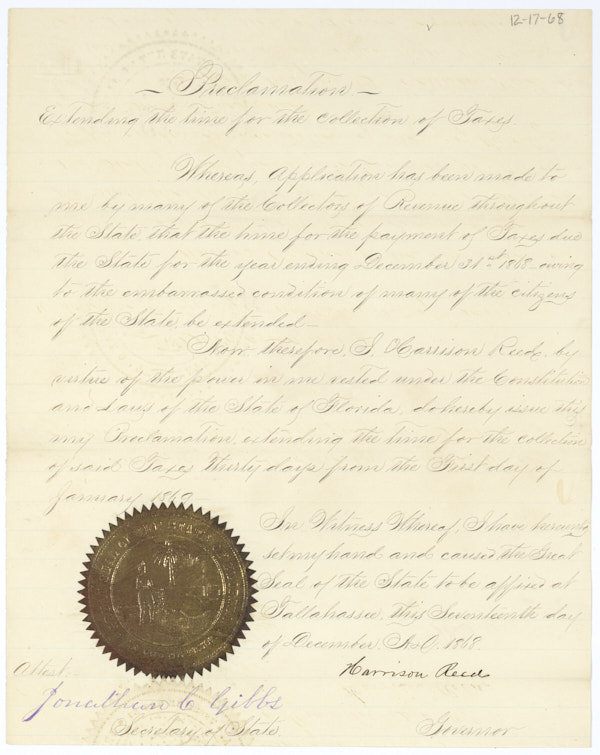 12-17-68
— Proclamation —
Extending the time for the collection of Taxes.
Whereas, Application has been made to
me by many of the Collectors of Revenue throughout
the State that the time for the payment of Taxes due
the State for the year ending December 31st 1868. owing
to the embarrassed condition of many of the citizens
of the State, be extended—
Now, therefore, I, Harrison Reed, by
virtue of the power in me vested under the Constitution
and Laws of the State of Florida, do hereby issue this
my Proclamation, extending the time for the collection
of said Taxes thirty days from the First day of
January 1869
In Witness Whereof, I have hereunto
set my hand and caused the Great
Seal of the State to be affixed at
Tallahassee, this Seventeenth day
of December, A.D. 1868.
Harrison Reed
Attest:
Jonathan C Gibbs
Secretary of State.
Governor